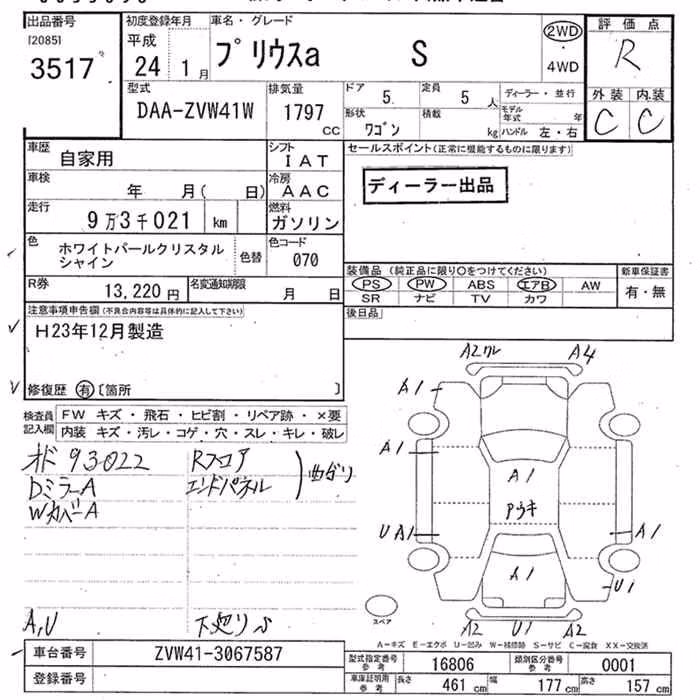 出品番号
[2085]
3517 番
初度登録年月
平成
24 1月
車名・グレード
プリウスa S
2WD
・
4WD
評価点
R
外装 内装
C C
型式
DAA-ZVW41W
排気量
1797
CC
ドア
5.
定員
5人
ディーラー・並行
形状
ワゴン
積載
kg
モデル年式 年
ハンドル 左・右
車歴
自家用
シフト
IAT
セールスポイント(正常に機能するものに限ります)
ディーラー出品
車検
年 月( 日)
冷房
AAC
走行
9万3千021 km
燃料
ガソリン
色
ホワイトパールクリスタル
シャイン
色替
色コード
070
R券
13,220円
名変通知期限
月 日
装備品(純正品に限り○をつけてください)
PS PW ABS エアB AW
SR ナビ TV カワ
新車保証書
有・無
後日品
注意事項申告欄(不具合内容等は具体的に記入して下さい)
H23年12月製造
修復歴 有 [箇所 ]
検査員
記入欄
FW キズ・飛石・ヒビ割・リペア跡・×要
内装 キズ・汚レ・コゲ・穴・スレ・キレ・破レ
オド 93022
DミラーA
WカバーA
Rフロア
エンドパネル
曲がり
A,U
下廻り
A2 A4
A1
A1
A1
UA1
A1
A1
U1
A2 U1 A2
スペア
A-キズ E-エクボ U-凹み W-補修跡 S-サビ C-腐食 XX-交換済
車台番号
ZVW41-3067587
登録番号
型式指定番号
参考
16806
類別区分番号
参考
0001
車庫証明用
参考
長さ
461 cm
幅
177 cm
高さ
157 cm